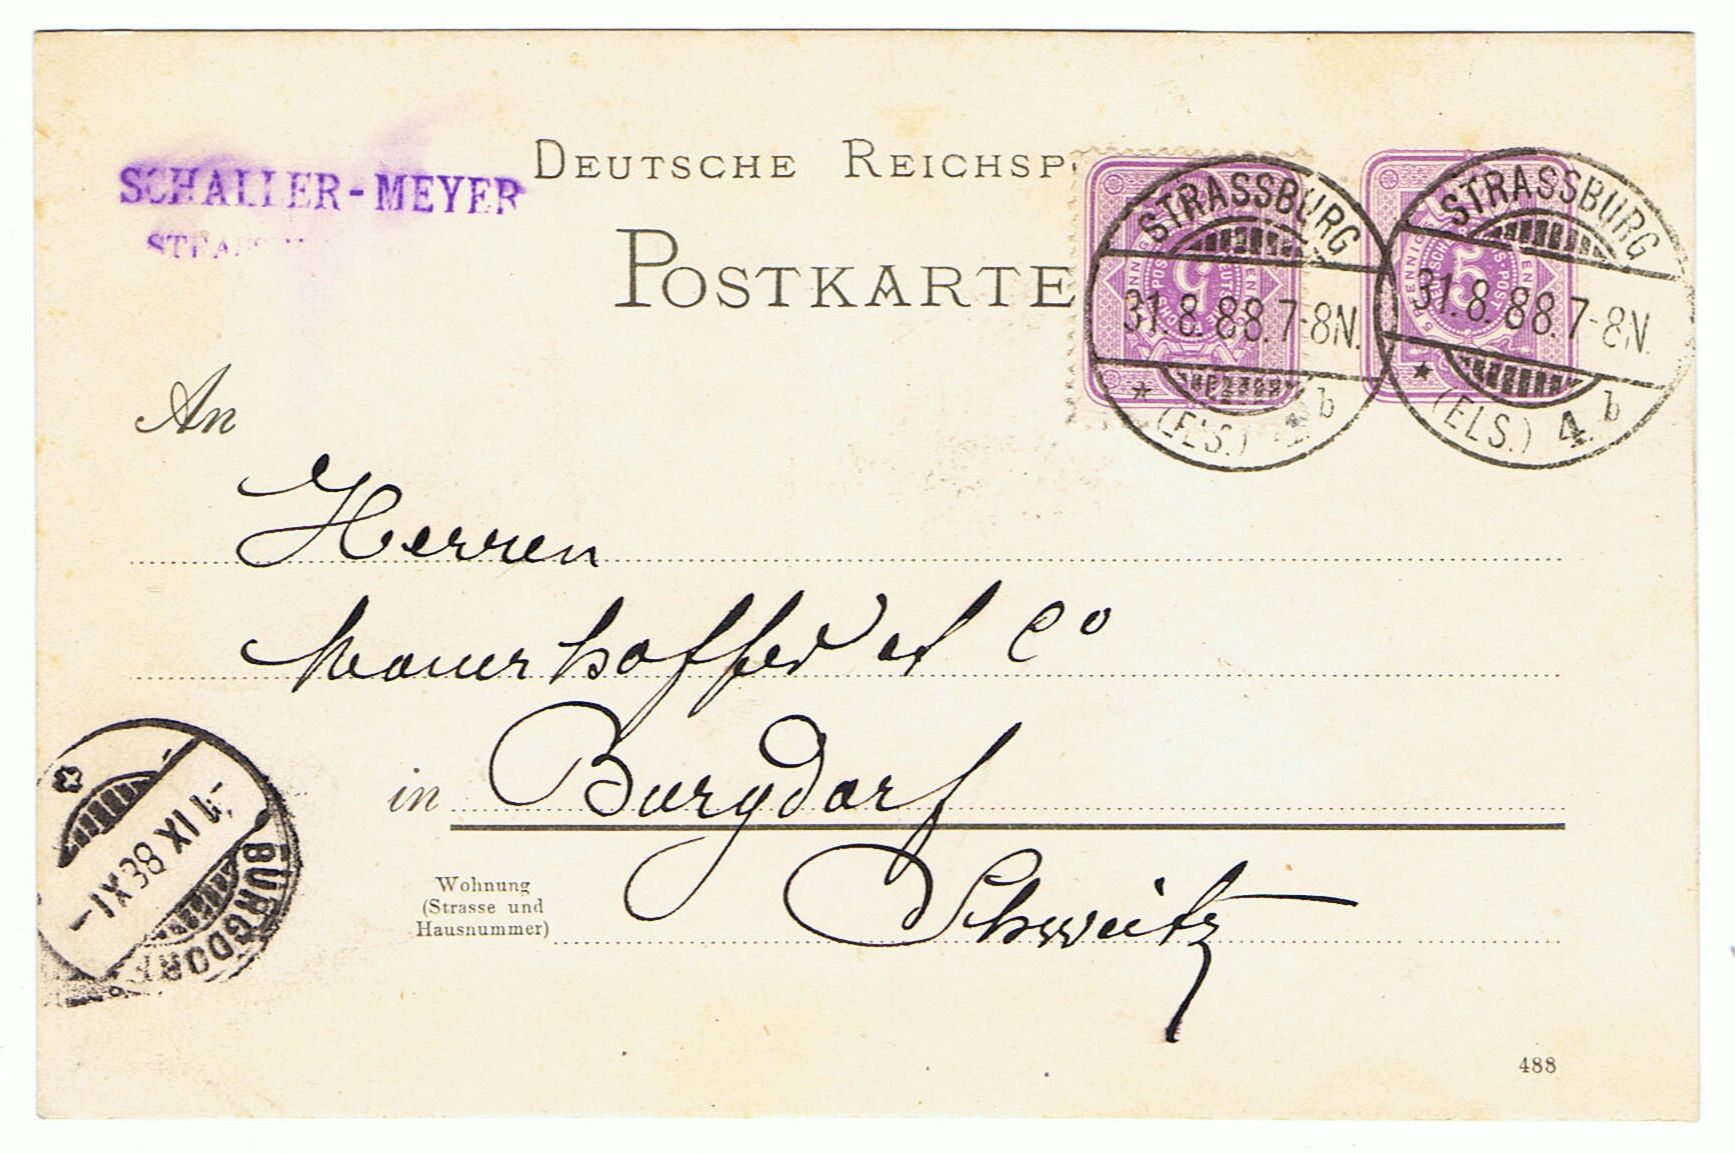 SCHALLER-MEYER
DEUTSCHE REICHSP
POSTKARTE
STRASSBURG
31.8.88.7-8N.
(ELS.) b
STRASSBURG
31.8.88.7-8N.
(ELS.) 4. b
5
5 PFENNIG
An
Herren
Mauerhoffer et Co
in Burgdorf
Schweitz
Wohnung
(Strasse und
Hausnummer)
BURGDORF
-1 IX 88 XI
488